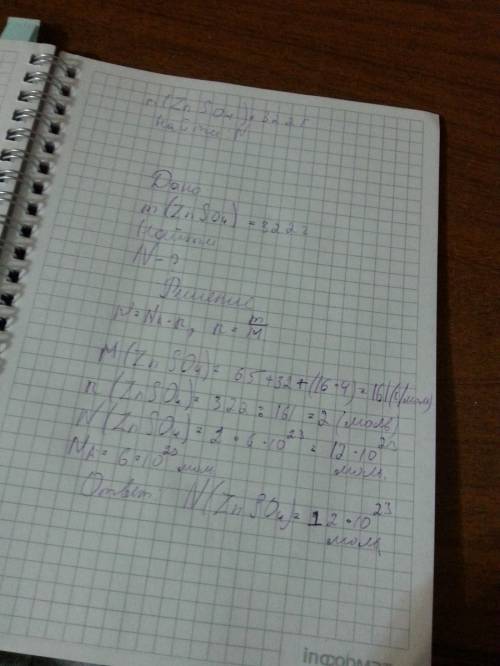 m(ZnSO4) = 322г
Найти N
Дано
m(ZnSO4) = 322г
Найти
N - ?
Решение
N = NA·n, n = m/M
M(ZnSO4) = 65+32+(16·4) = 161(г/моль)
n(ZnSO4) = 322 : 161 = 2 (моль)
N(ZnSO4) = 2 · 6 · 10^23 = 12 · 10^23 молек
NA = 6 · 10^23 мол
Ответ N(ZnSO4) = 12 · 10^23 молек